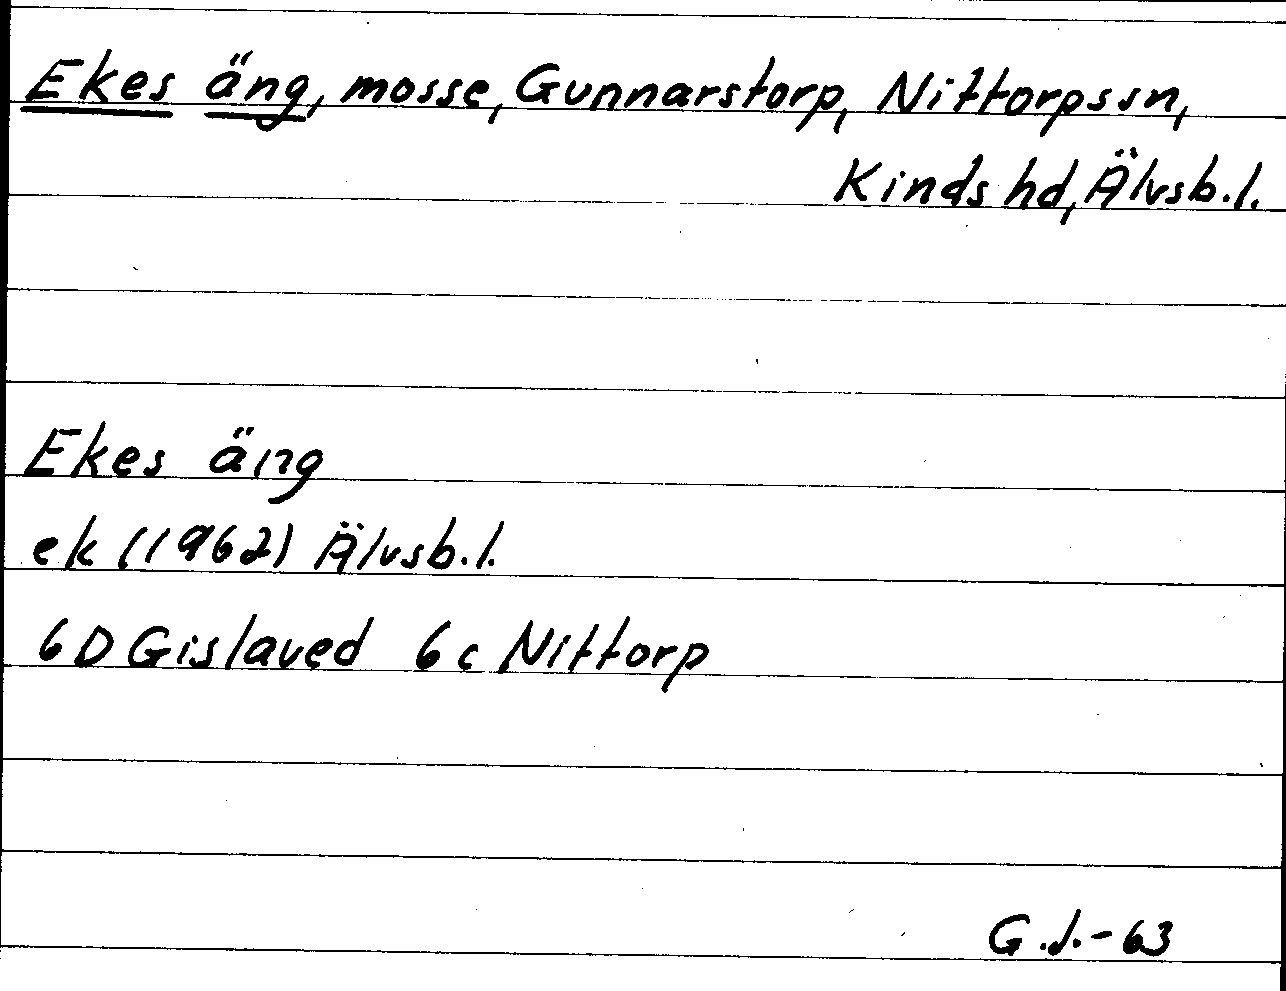 Ekes äng, mosse, Gunnarstorp, Nittorps sn,
Kinds hd, Älvsb.l.
Ekes äng
ek (1962) Älvsb.l.
6D Gislaved 6c Nittorp
G.J.-63